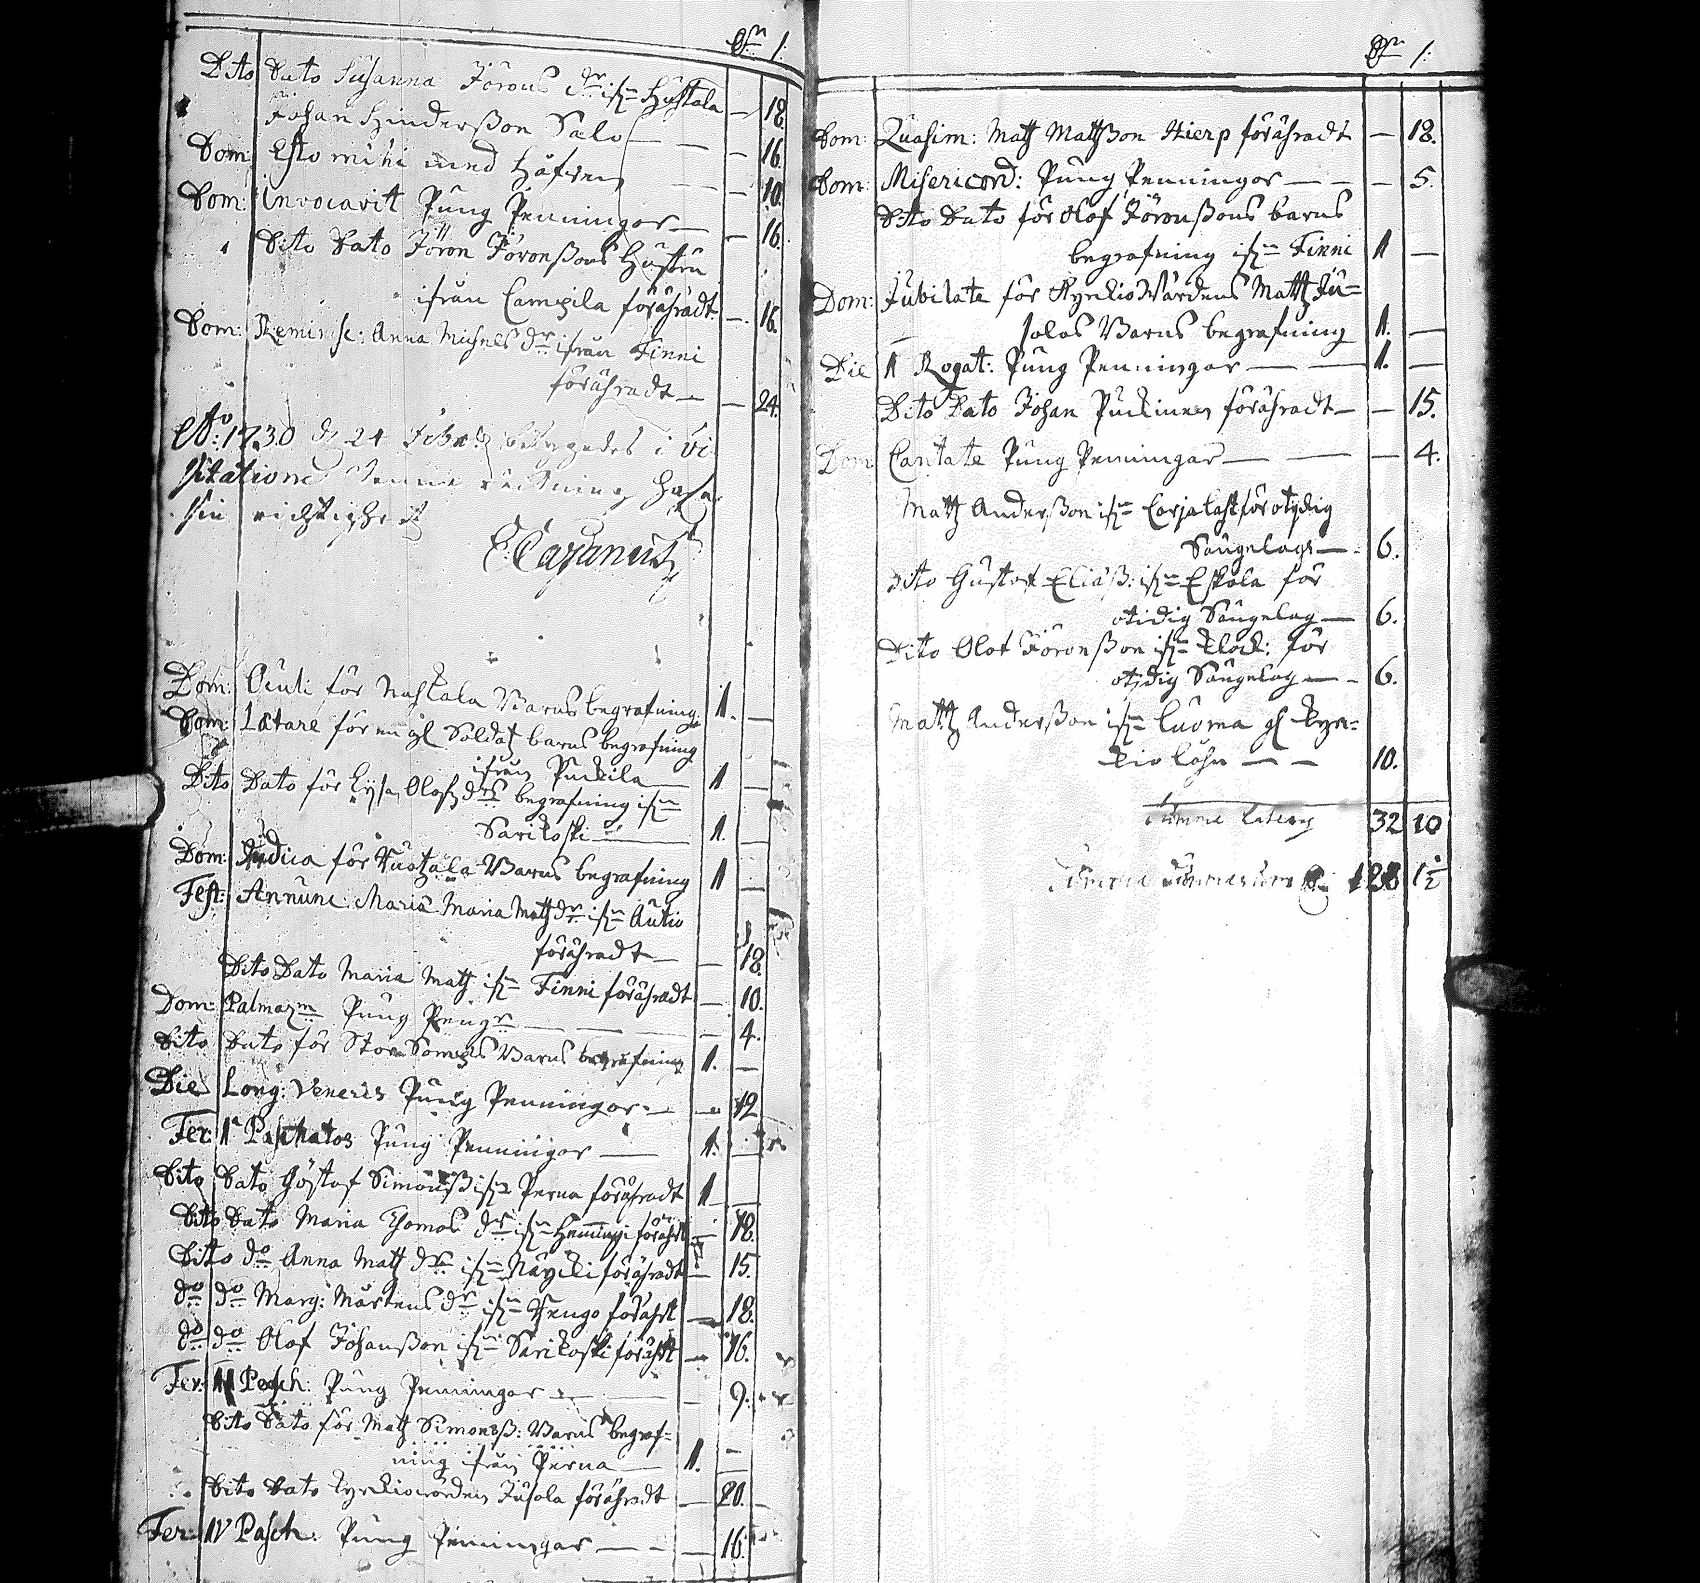 Dito Dato Susanna Jörans dr ifrn Hustala — 18.
Johan Hindersson Salo — — 16.
Dom: Esto mihi med Håfven — — 10.
Dom: Invocavit Pung Penningar — — 16.
Dito Dato Jöran Jöranssons Hustru
ifrån Campila förähradt — 16.
Dom: Reminisc: Anna Michels dr ifrån Finni
förähradt — — 24.
Ao: 1730 d 24 Febr: i Vi
sitatione denne räkning hafa
sin richtighet
Dom: Oculi för Barns begrafning 1. —
Dom: Lætare för en gl Soldatz barns begrafning
ifrån Puckila — 1 —
Dito Dato för Lysa Olofz drs begrafning ifrn
Sarikoski — 1. —
Dom: Judica för Barns begrafning 1 —
Fest: Annunc: Mariæ Maria Matz dr ifrn Autio
förähradt — — 18.
Dito Dato Maria Matz ifrn Finni förähradt — 10.
Dom: Palmarm Pung Pengr — — 4.
Dito Dato för Stor Sompis Barns begrafning 1. —
Die Long: Veneris Pung Penningar — — 12
Fer: 1a Paschatos Pung Penningar — 1. —
Dito Dato Göstaf Simonss ifrn Perna förähradt 1 —
Dito Dato Maria Thomos dr ifrn Hemminpi förährt — 18.
Dito do Anna Matz dr ifrn Näycki förähradt — 15.
do do Marg: Mårtens dr ifrn Kengo förährt — 18.
do do Olof Johansson ifrn Sarikoski förährt — 16.
Fer: II Pasch: Pung Penningar — — 9.
Dito Dato för Matz Simonss: Barns begraf=
ning ifrån Perna — 1. —
Dito Dato Kyrkiovärden Jusola förähradt — 20.
Fer: IV Pasch: Pung Penningar — — 16.
Dom: Quasim: Matz Matzson Hierp förähradt — 18.
Dom: Misericord: Pung Penningar — — 5.
Dito Dato för Olof Jöranssons barns
begrafning ifrn Finni 1 —
Dom: Jubilate för Kyrkio Wärdens Matz Ju=
solas Barns begrafning 1. —
Die 1 Rogat: Pung Penningar — — 1. —
Dito Dato Johan Puckinen förähradt — — 15.
Dom Cantate Pung Penningar — — — 4.
Matz Andersson ifrn Corjalast för otydig
Sängelag — 6.
Dito Gustaf Eliæss: ifrn Eskola för
otidig Sängelag — 6.
Dito Olof Jöransson ifrn Klock: för
otidig Sängelag — — 6.
Matz Andersson ifrn Luoma gl Kyr=
kio Lohn — — 10.
Summa Lateris 32 10
Summa Summarum 1½